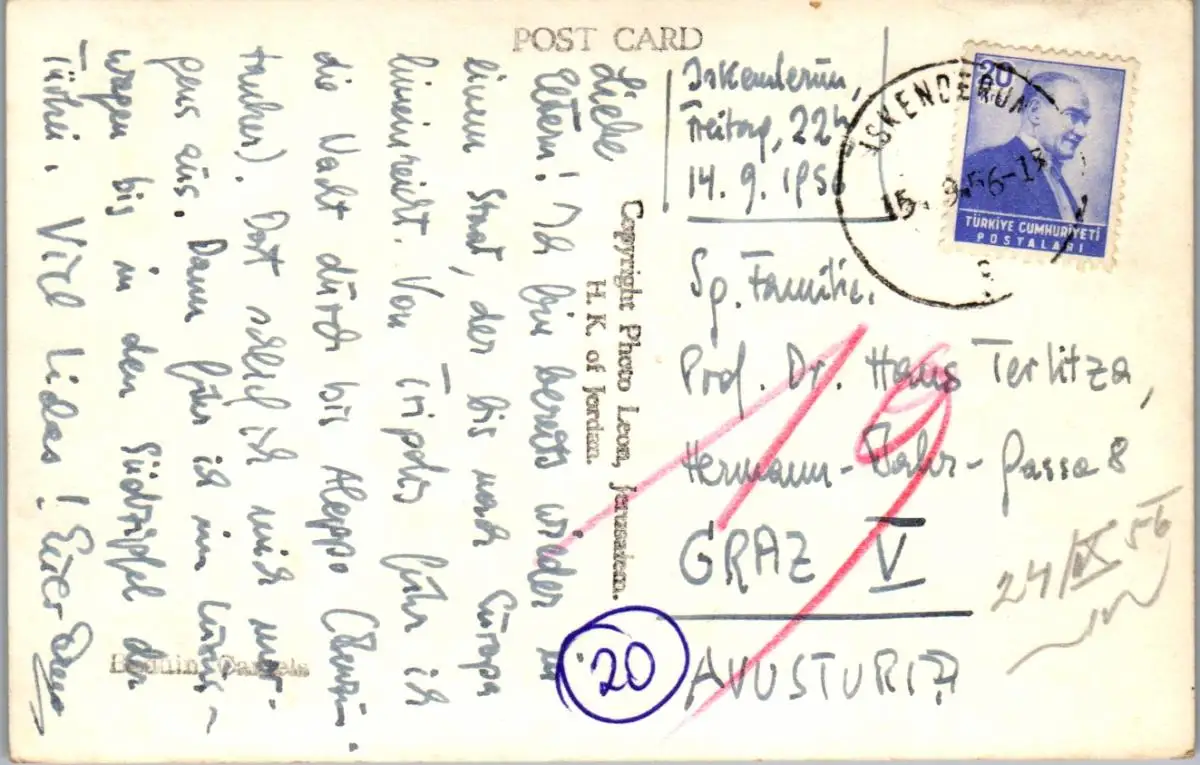 POST CARD
Iskenderun,
Freitag, 22h
14. 9. 1956
Liebe
Eltern! Ich bin bereits wieder in
einem Staat, der bis nach Europa
hineinreicht. Von Tripolis fuhr ich
die Nacht durch bis Aleppo (Benzin-
tanker). Dort schlief ich mich mor-
gens aus. Dann fuhr ich im Luxus-
wagen bis in den Südzipfel der
Türkei. Viel Liebes! Euer
Camels
Copyright Photo Leon, Jerusalem.
H. K. of Jordan.
20
TÜRKİYE CUMHURİYETİ
POSTALARI
ISKENDERUN
15.9.56-18
Sg. Familie
Prof. Dr. Hans Terlitza,
Hermann-Bahr-Gasse 8
GRAZ V
AVUSTURIA
20
24/IX 56